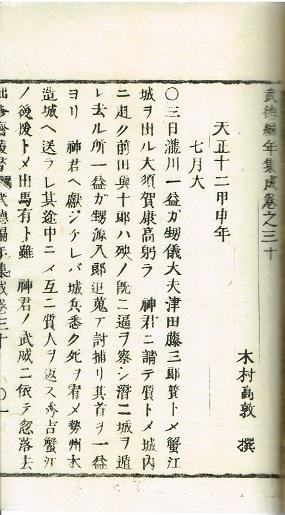 武德編年集成卷之三十
木村高敦 撰
天正十二甲申年
七月大
〇三日瀧川一益ガ甥儀大夫津田藤三郎質トメ蟹江
城ヲ出ル大須賀康高躬ラ 神君ニ請テ質トメ城内
ニ赴ク前田與十郎ハ殃ノ既ニ逼ヲ察シ潛ニ城ヲ遁
レ去ル所一益ガ甥源八郎追蒐ア討捕リ其首ヲ一益
ヨリ 神君ヘ獻ジケレバ城兵悉ク死ヲ宥メ勢州木
造城ヘ送ラレ其途中ニメ互ニ質人ヲ返ス秀吉蟹江
ノ後陵トメ出馬有ト雖 神君ノ武威ニ依テ忽落去
武德編年集成卷三十 〇一